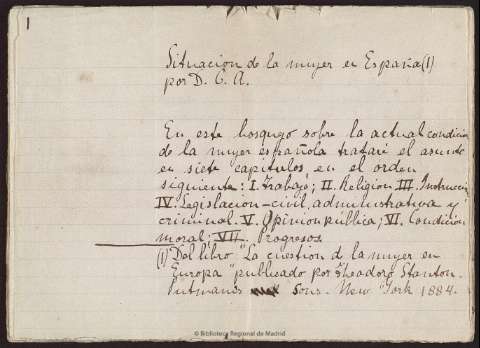 1
Situacion de la mujer en España (1)
por D. C. A.
En este bosquejo sobre la actual condicion
de la mujer española trataré el asunto
en siete capitulos, en el orden
siguiente: I. Trabajo; II. Religion III. Instruccion
IV. Legislacion-civil, administrativa y
criminal. V. Opinion publica; VI. Condicion
moral; VII. Progresos
(1) Del libro "La cuestion de la mujer en
Europa" publicado por Theodoro Stanton.
Putmanis Sons. New York 1884.
© Biblioteca Regional de Madrid